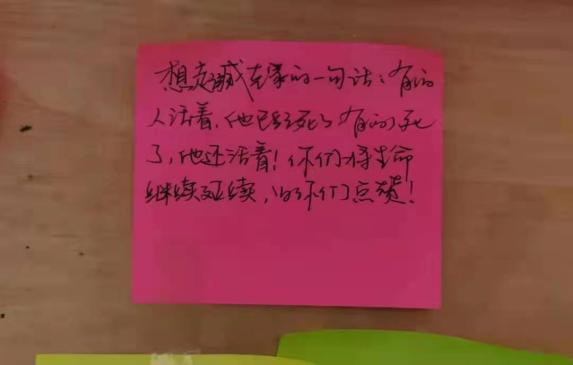 想起臧克家的一句话：有的
人活着，他已经死了有的人死
了，他还活着！你们将生命
继续延续，为你们点赞！